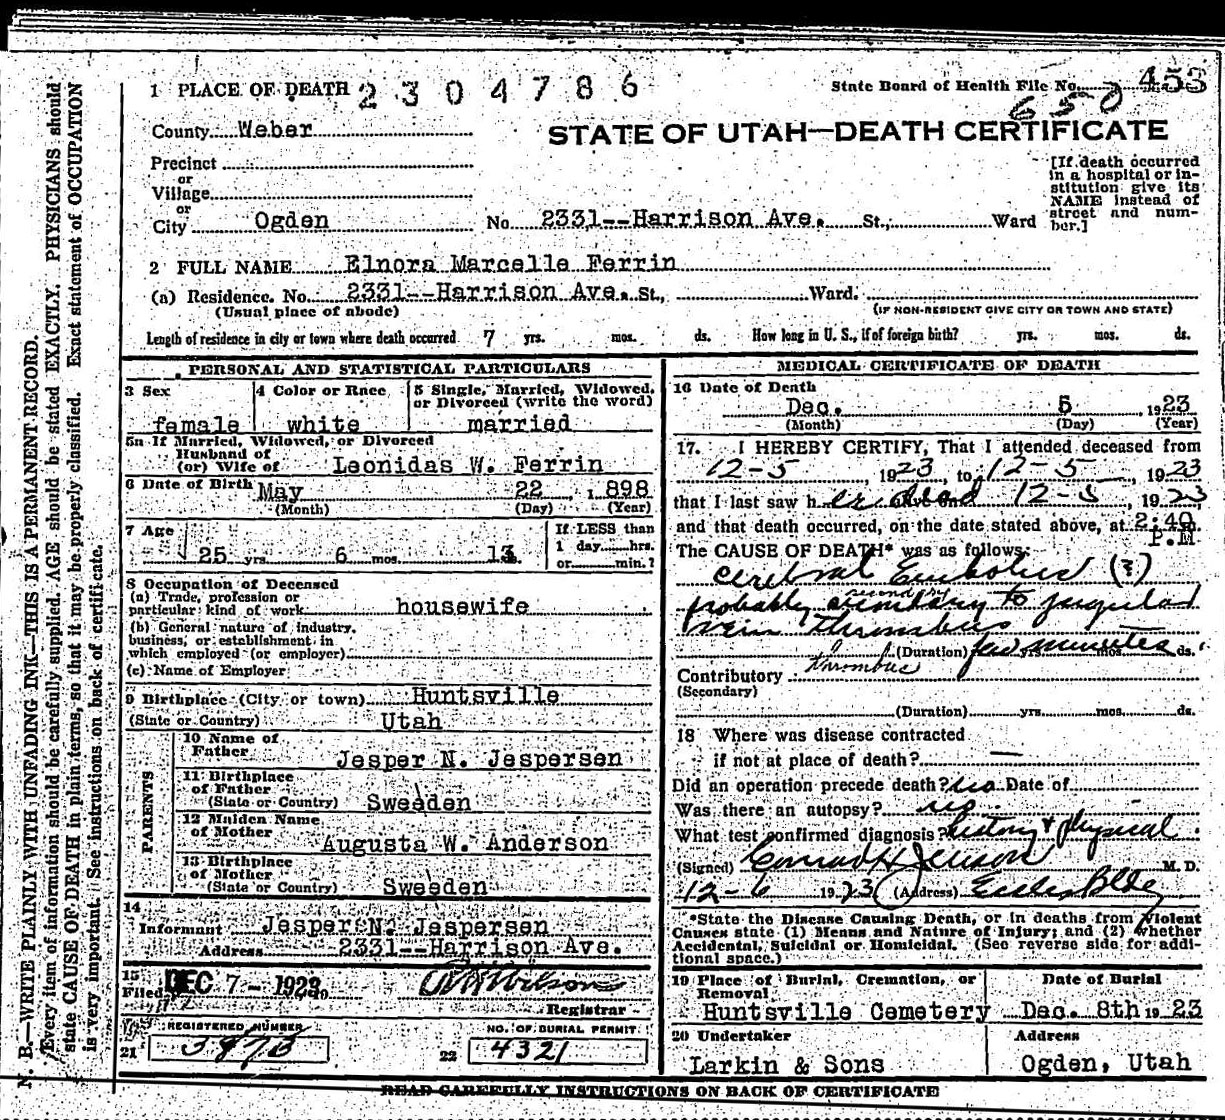 1 PLACE OF DEATH 2304786
State Board of Health File No. 453
650
County Weber
STATE OF UTAH—DEATH CERTIFICATE
Precinct
or
Village
or
City Ogden No. 2331--Harrison Ave. St.; Ward
[If death occurred
in a hospital or in-
stitution give its
NAME instead of
street and num-
ber.]
2 FULL NAME Elnora Marcelle Ferrin
(a) Residence. No. 2331--Harrison Ave. St., Ward.
(Usual place of abode) (IF NON-RESIDENT GIVE CITY OR TOWN AND STATE)
Length of residence in city or town where death occurred 7 yrs. mos. ds. How long in U. S., if of foreign birth? yrs. mos. ds.
PERSONAL AND STATISTICAL PARTICULARS
3 Sex 4 Color or Race 5 Single, Married, Widowed,
or Divorced (write the word)
female white married
5a If Married, Widowed, or Divorced
Husband of
(or) Wife of Leonidas W. Ferrin
6 Date of Birth May 22, 1898
(Month) (Day) (Year)
7 Age If LESS than
1 day hrs.
25 yrs 6 mos 13 or min.?
8 Occupation of Deceased
(a) Trade, profession or
particular kind of work housewife
(b) General nature of industry,
business, or establishment in
which employed (or employer)
(c) Name of Employer
9 Birthplace (City or town) Huntsville
(State or Country) Utah
PARENTS
10 Name of
Father Jesper N. Jespersen
11 Birthplace
of Father
(State or Country) Sweeden
12 Maiden Name
of Mother
Augusta W. Anderson
13 Birthplace
of Mother
(State or Country) Sweeden
14
Informant Jesper N. Jespersen
Address 2331--Harrison Ave.
15
Filed DEC 7 - 1923
Registrar
REGISTERED NUMBER NO. OF BURIAL PERMIT
21 22 4321
MEDICAL CERTIFICATE OF DEATH
16 Date of Death
Dec. 5, 1923
(Month) (Day) (Year)
17. I HEREBY CERTIFY, That I attended deceased from
12-5, 1923, to 12-5, 1923
that I last saw her dead 12-5, 1923,
and that death occurred, on the date stated above, at 2:40
P.M
The CAUSE OF DEATH* was as follows:
Cerebral Embolus (?)
probably secondary to jugular
vein thrombus
(Duration) few minutes yrs. mos. ds.
Contributory thrombus
(Secondary)
(Duration) yrs. mos. ds.
18 Where was disease contracted
if not at place of death? —
Did an operation precede death? no Date of
Was there an autopsy? no
What test confirmed diagnosis? history & physical
(Signed) Conrad H Jenson M. D.
12-6 1923 (Address) Eccles Bldg
*State the Disease Causing Death, or in deaths from Violent
Causes state (1) Means and Nature of Injury; and (2) whether
Accidental, Suicidal or Homicidal. (See reverse side for addi-
tional space.)
19 Place of Burial, Cremation, or
Removal Date of Burial
Huntsville Cemetery Dec. 8th 1923
20 Undertaker Address
Larkin & Sons Ogden, Utah
READ CAREFULLY INSTRUCTIONS ON BACK OF CERTIFICATE
N. B.—WRITE PLAINLY WITH UNFADING INK—THIS IS A PERMANENT RECORD.
Every item of information should be carefully supplied. AGE should be stated EXACTLY. PHYSICIANS should
state CAUSE OF DEATH in plain terms, so that it may be properly classified. Exact statement of OCCUPATION
is very important. See instructions on back of certificate.